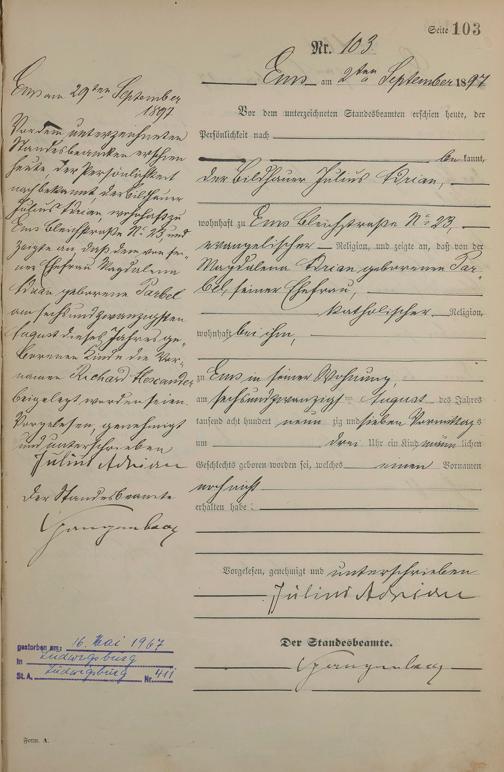 Seite 103
Nr. 103
Ems am 2ten September 1897
Vor dem unterzeichneten Standesbeamten erschien heute, der
Persönlichkeit nach
be kannt,
der Bildhauer Julius Adrian,
wohnhaft zu Ems Bleichstraße No 23,
evangelischer Religion, und zeigte an, daß von der
Magdalena Adrian geborenen Par-
bel, seiner Ehefrau,
katholischer Religion,
wohnhaft bei ihm,
zu Ems in seiner Wohnung,
am sechsundzwanzigst August des Jahres
tausend acht hundert neun zig und sieben Vormittags
um drei Uhr ein Kind männ lichen
Geschlechts geboren worden sei, welches einen Vornamen
noch nicht
erhalten habe
Vorgelesen, genehmigt und unterschrieben
Julius Adrian
Der Standesbeamte.
Ems am 29ten September
1897
Vor dem unterzeichneten
Standesbeamten erschien
heute, der Persönlichkeit
nach bekannt, der Bildhauer
Julius Adrian, wohnhaft zu
Ems Bleichstraße No 23, und
zeigte an, daß dem von sei-
ner Ehefrau Magdalena
Adrian geborene Parbel
am sechsundzwanzigsten
August dieses Jahres ge-
borenen Kinde die Vor-
namen Richard Alexander
beigelegt worden seien.
Vorgelesen, genehmigt
und unterschrieben
Julius Adrian
Der Standesbeamte
gestorben am: 16. Mai 1967
in Ludwigsburg
St. A. Ludwigsburg Nr. 411
Form. A.